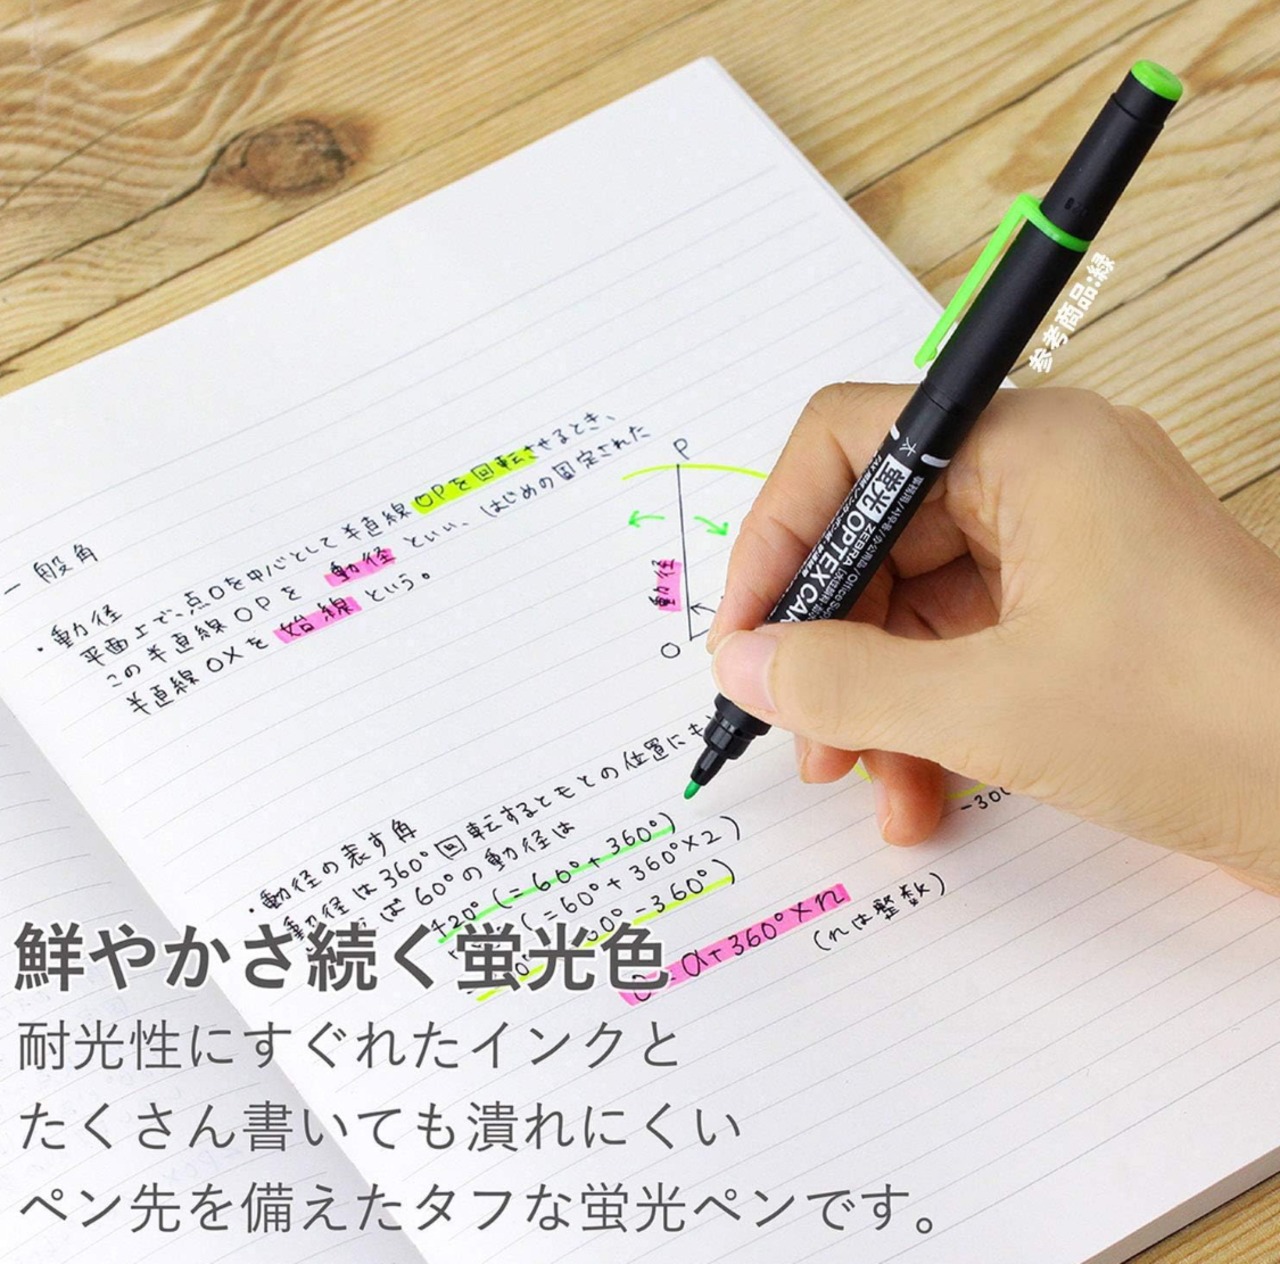 一般角
・動径
平面上で、点Oを中心として半直線OPを回転させるとき、
この半直線OPを動径といい、はじめの固定された
半直線OXを始線という。
P
動径
O
参考商品:緑
太
蛍光 OPTEX CAR
ZEBRA
事務用/사무용/办公用品/Office Su
・動径の表す角
動径は360°回転するともとの位置にも
ば60°の動径は
420°(=60°+360°)
(=60°+360°×2)
60°-360°)
=α+360°×n
(nは整数)
-300
鮮やかさ続く蛍光色
耐光性にすぐれたインクと
たくさん書いても潰れにくい
ペン先を備えたタフな蛍光ペンです。